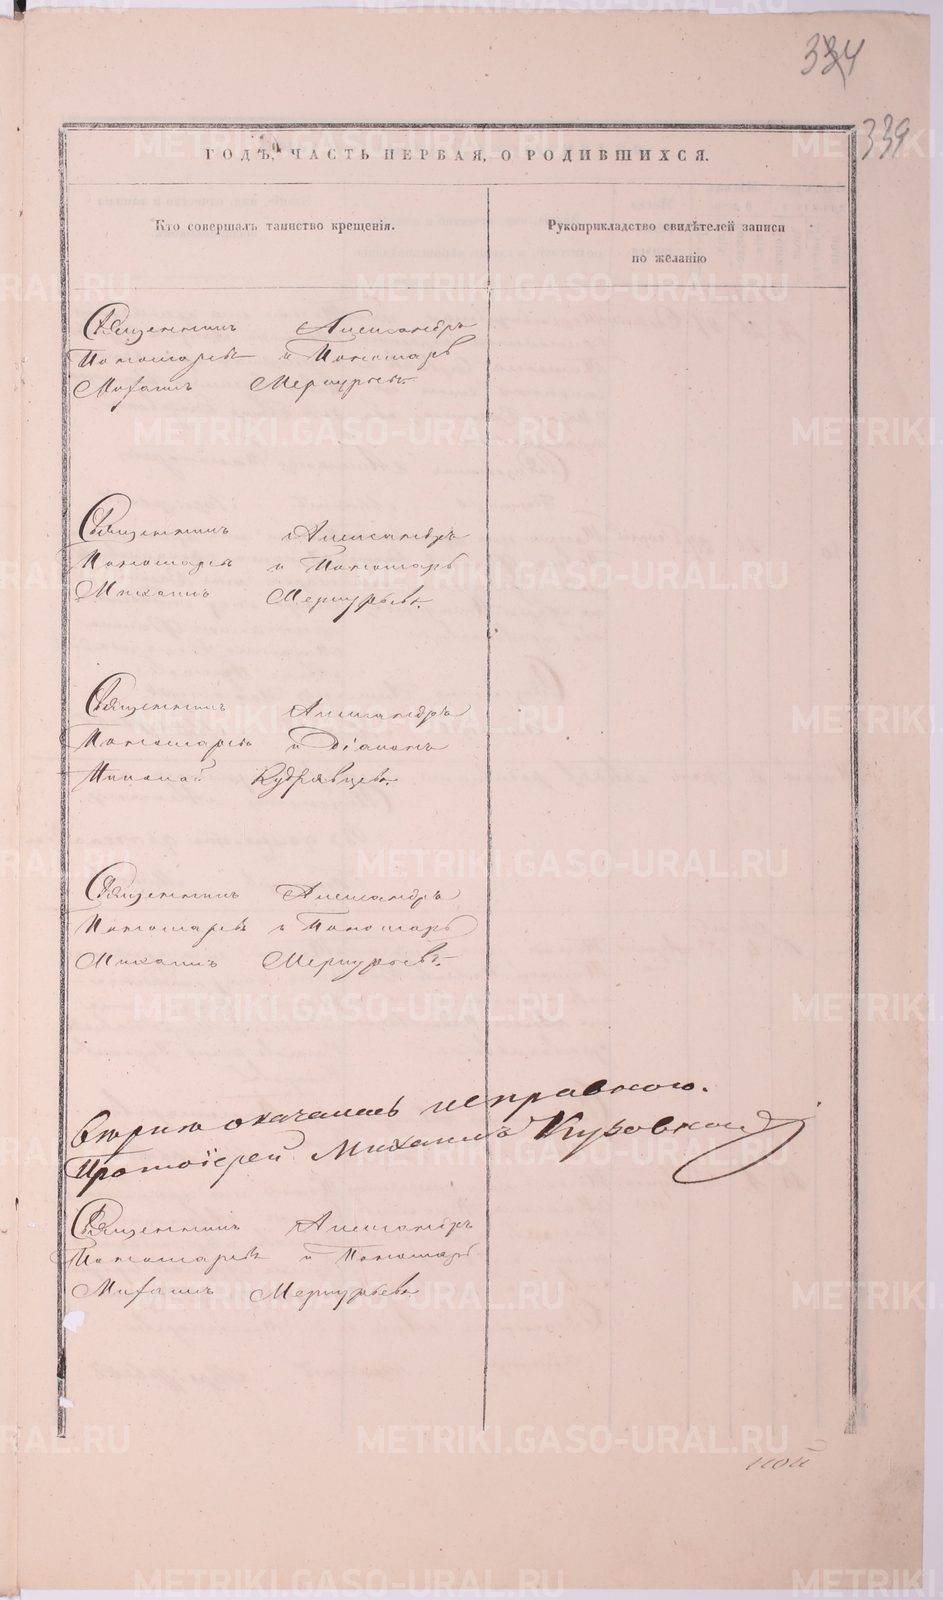 334
339
ГОДЪ, ЧАСТЬ ПЕРВАЯ, О РОДИВШИХСЯ.
Кто совершалъ таинство крещенія.
Рукоприкладство свидѣтелей записи
по желанію
Священникъ Александръ
Пономаревъ и Пономарь
Михаилъ Меркурьевъ.
Священникъ Александръ
Пономаревъ и Пономарь
Михаилъ Меркурьевъ.
Священникъ Александръ
Пономаревъ и Діаконъ
Николай Кудрявцевъ.
Священникъ Александръ
Пономаревъ и Пономарь
Михаилъ Меркурьевъ.
оказалась исправною.
Протоіерей Михаилъ
Священникъ Александръ
Пономаревъ и Пономарь
Михаилъ Меркурьевъ
ной
METRIKI.GASO-URAL.RU